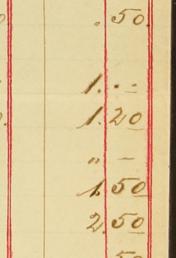 . 50.
1. --
1. 20
" -
1. 50
2. 50
50